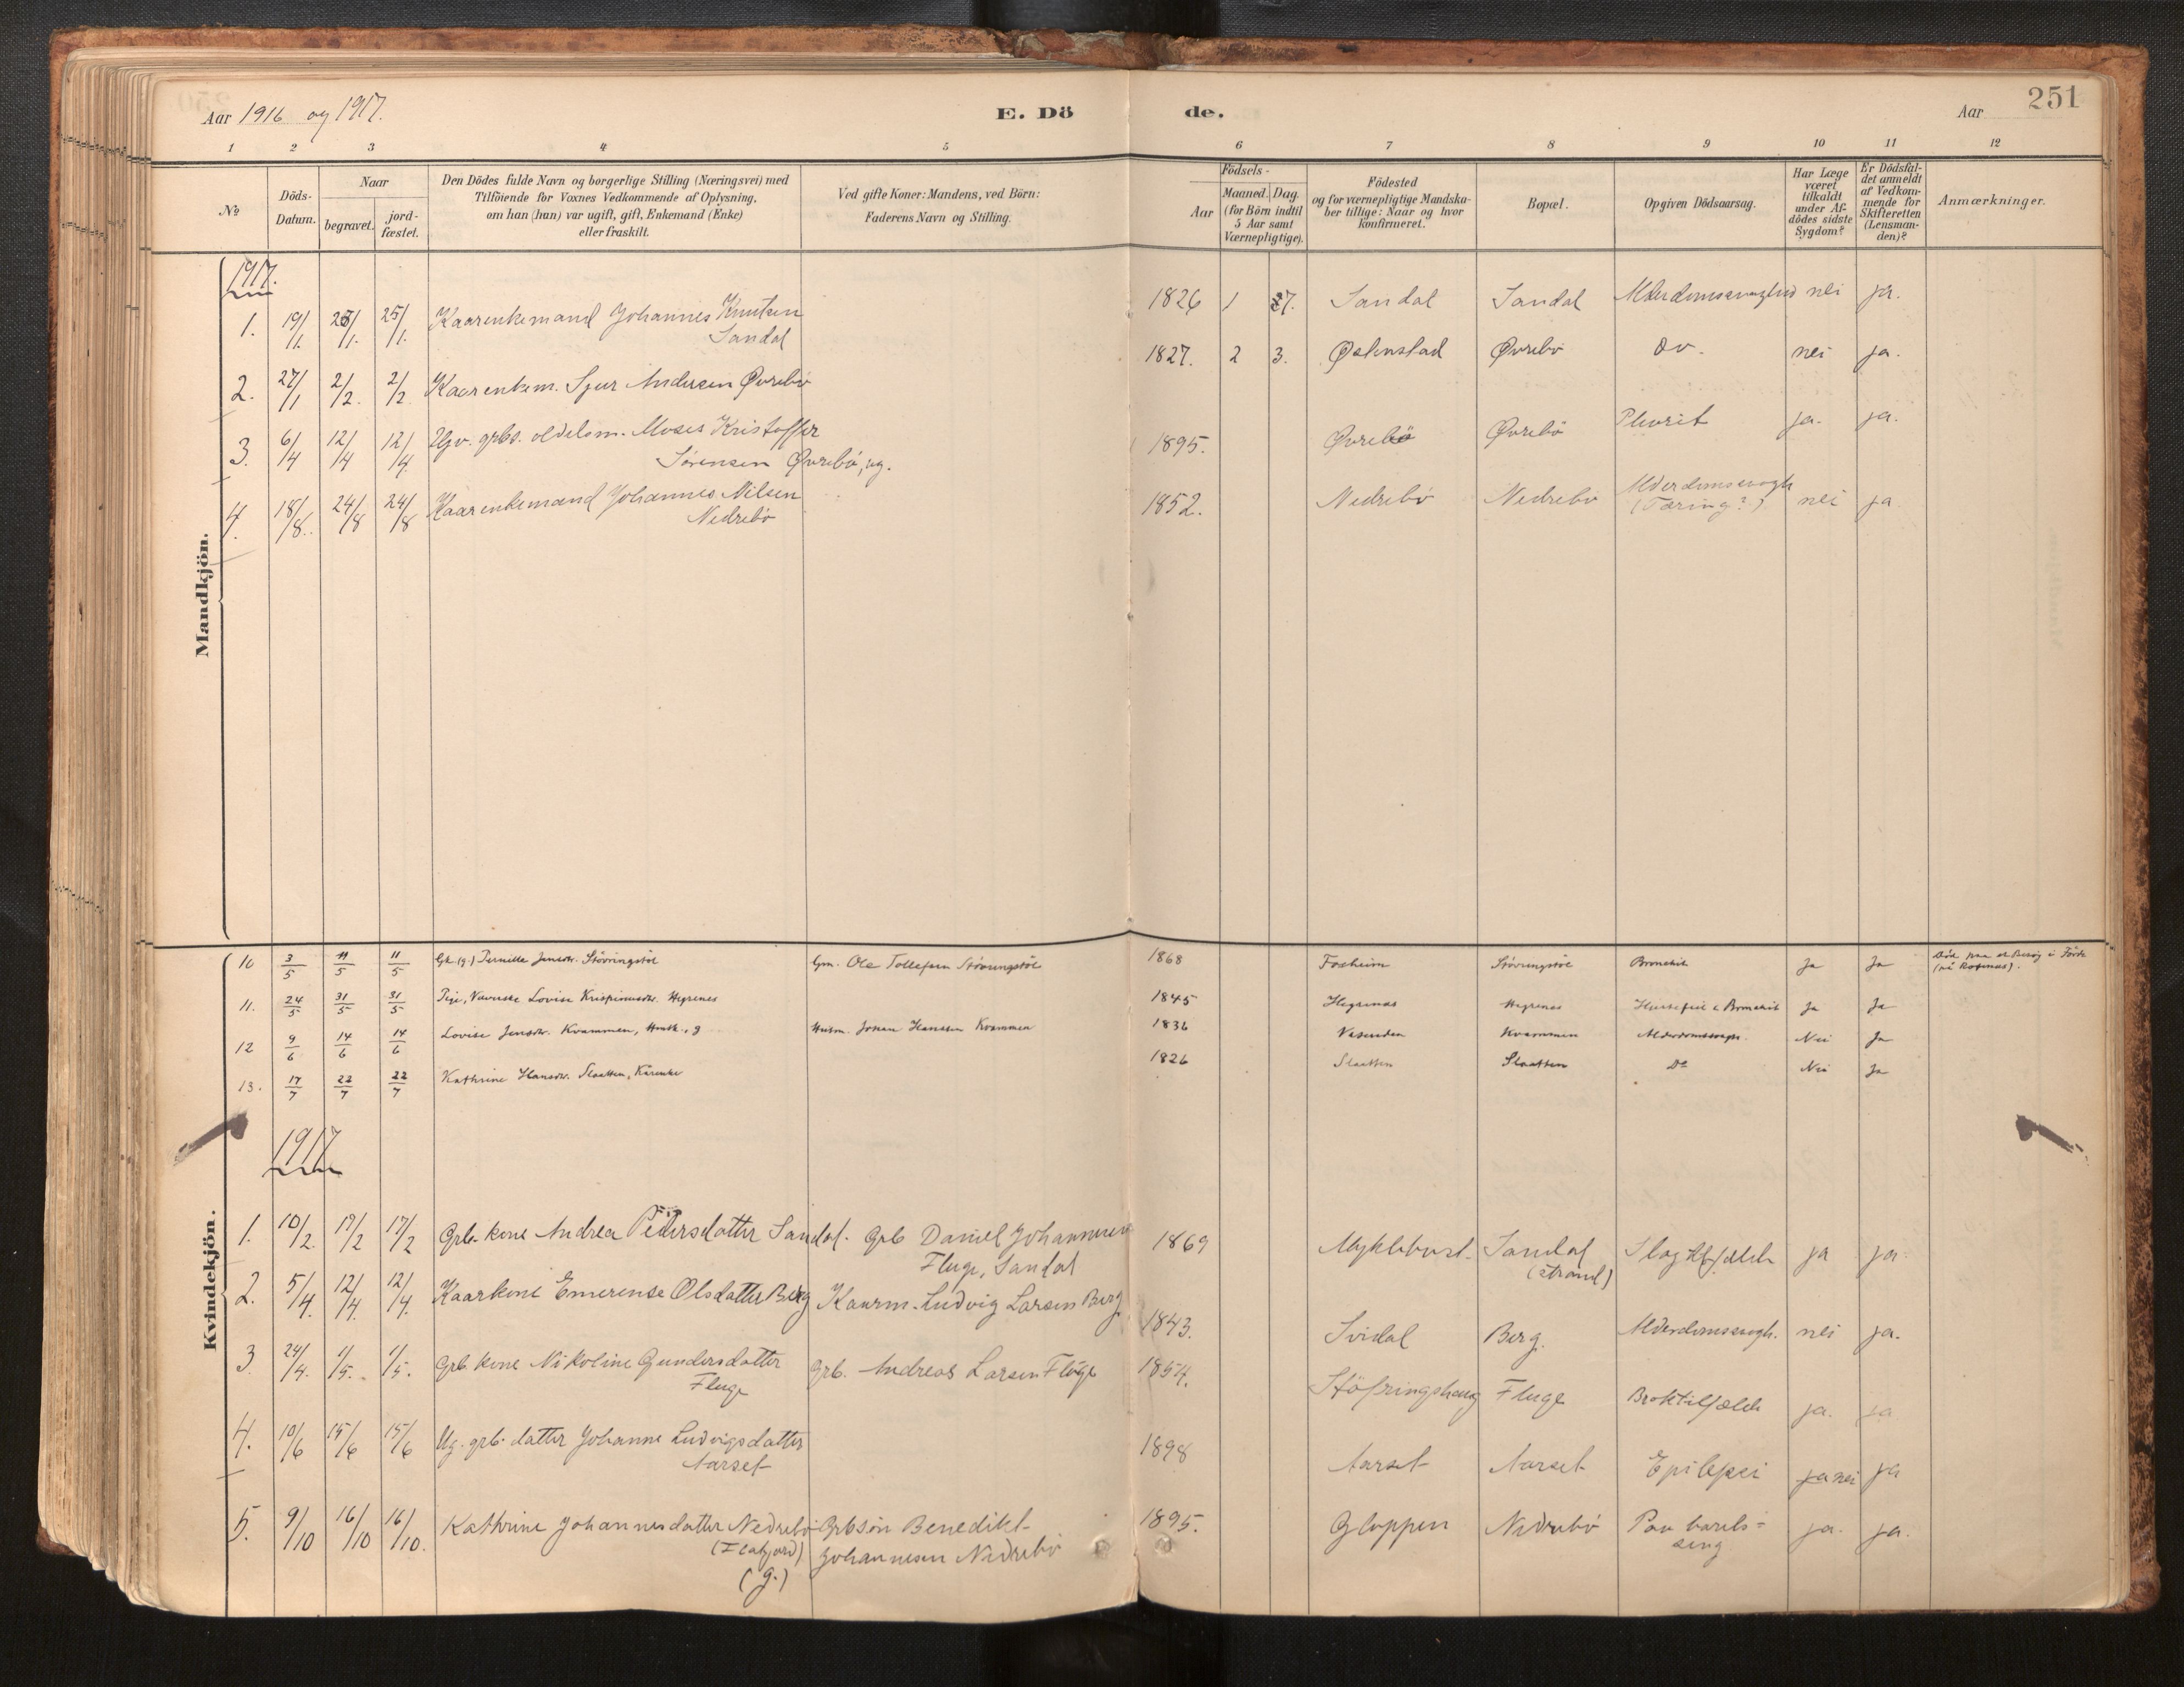 Aar 1916 og 1917. E. Dö de. Aar 251
1 2 3 4 5 6 7 8 9 10 11 12
No
Döds-Datum.
Naar
begravet.
jord-fæstet.
Den Dödes fulde Navn og borgerlige Stilling (Næringsvei) med
Tilföiende for Voxnes Vedkommende af Oplysning,
om han (hun) var ugift, gift, Enkemand (Enke)
eller fraskilt.
Ved gifte Koner: Mandens, ved Börn:
Faderens Navn og Stilling.
Födsels-
Aar
Maaned. Dag.
(for Börn indtil
5 Aar samt
Værnepligtige).
Födested
og for værnepligtige Mandska-
ber tillige: Naar og hvor
konfirmeret.
Bopæl.
Opgiven Dödsaarsag.
Har Læge
været
tilkaldt
under Af-
dödes sidste
Sygdom?
Er Dödsfal-
det anmeldt
af Vedkom-
mende for
Skifteretten
(Lensman-
den)?
Anmærkninger.
Mandkjön.
1917.
1. 19/1. 25/1. 25/1. Kaarenkemand Johannes Knutsen 1826 1 27. Sandal Sandal nei ja.
Sandal
2. 27/1 2/2. 2/2 Kaarenkem. Sjur Andersen Øvrebø 1827. 2 3. Øvrebø Do. nei ja.
3. 6/4 12/4 12/4. grbs. Moses Kristoffer 1895. Øvrebö Øvrebö Pleurit ja. ja.
Sörensen Øvrebö, ug.
4. 18/8. 24/8 24/8 Kaarenkemand Johannes Nilsen 1852. Nedrebø Nedrebø Alderdomssvagh nei ja
Nedrebø (Tæring?)
Kvindekjön.
10 3/5 11/5 11/5 Pernille Jensdtr. Stövringstöl Gm. Ole Tollefsen Stövringstöl 1868 Foxheim Stövringstöl Bronchit Ja Ja
11. 24/5 31/5 31/5 Pige, Lovise Krispinusdtr. Hegrenes 1845 Hegrenes Hegrenes Hjertefeil & Bronchit Ja Ja
12 9/6 14/6 14/6 Lovise Jensdtr. Kvammen, Husk., g Husm. Johan Hanssen Kvammen 1836 Vasenden Kvammen Alderdomssvagh. Nei Ja
13. 17/7 22/7 22/7 Kathrine Hansdr. Slaatten, Kårenke 1826 Slaatten Slaatten Do Nei Ja
1917
1. 10/2. 17/2 17/2 Grb. kone Andrea Pedersdatter Sandal. Grb Daniel Johannesen 1869 Myklebust Sandal ja ja.
Fluge, Sandal (strand)
2. 5/4. 12/4. 12/4. Kaarkone Emerense Olsdatter Berg Kaarm. Ludvig Larsen Berg 1843. Svidal Berg. Alderdomssvagh. nei ja.
3 24/4. 1/5. 1/5. Grb. kone Nikoline Gundersdatter Grb. Andreas Larsen Fluge 1854. Fluge Broktilfælde ja. ja
Fluge
4. 10/6 15/6 15/6 Ug. grb. datter Johanne Ludvigsdatter 1898 Aarset Aarset Epilepsi ja nei ja
Aarset
5. 9/10 16/10 16/10. Kathrine Johannesdatter Nedrebö Grbsön Benedikt 1895. Gloppen Nedrebö ja. ja.
Johannesen Nedrebö
(g.)